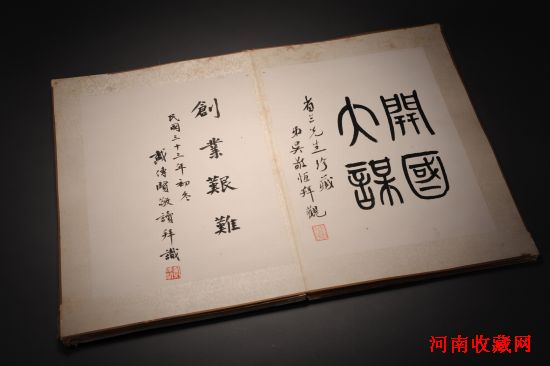 開國
大謀
省三先生珍藏
弟吳敬恒拜觀
創業艱難
民國三十三年初冬
戴傳賢敬讀拜識
河南收藏网